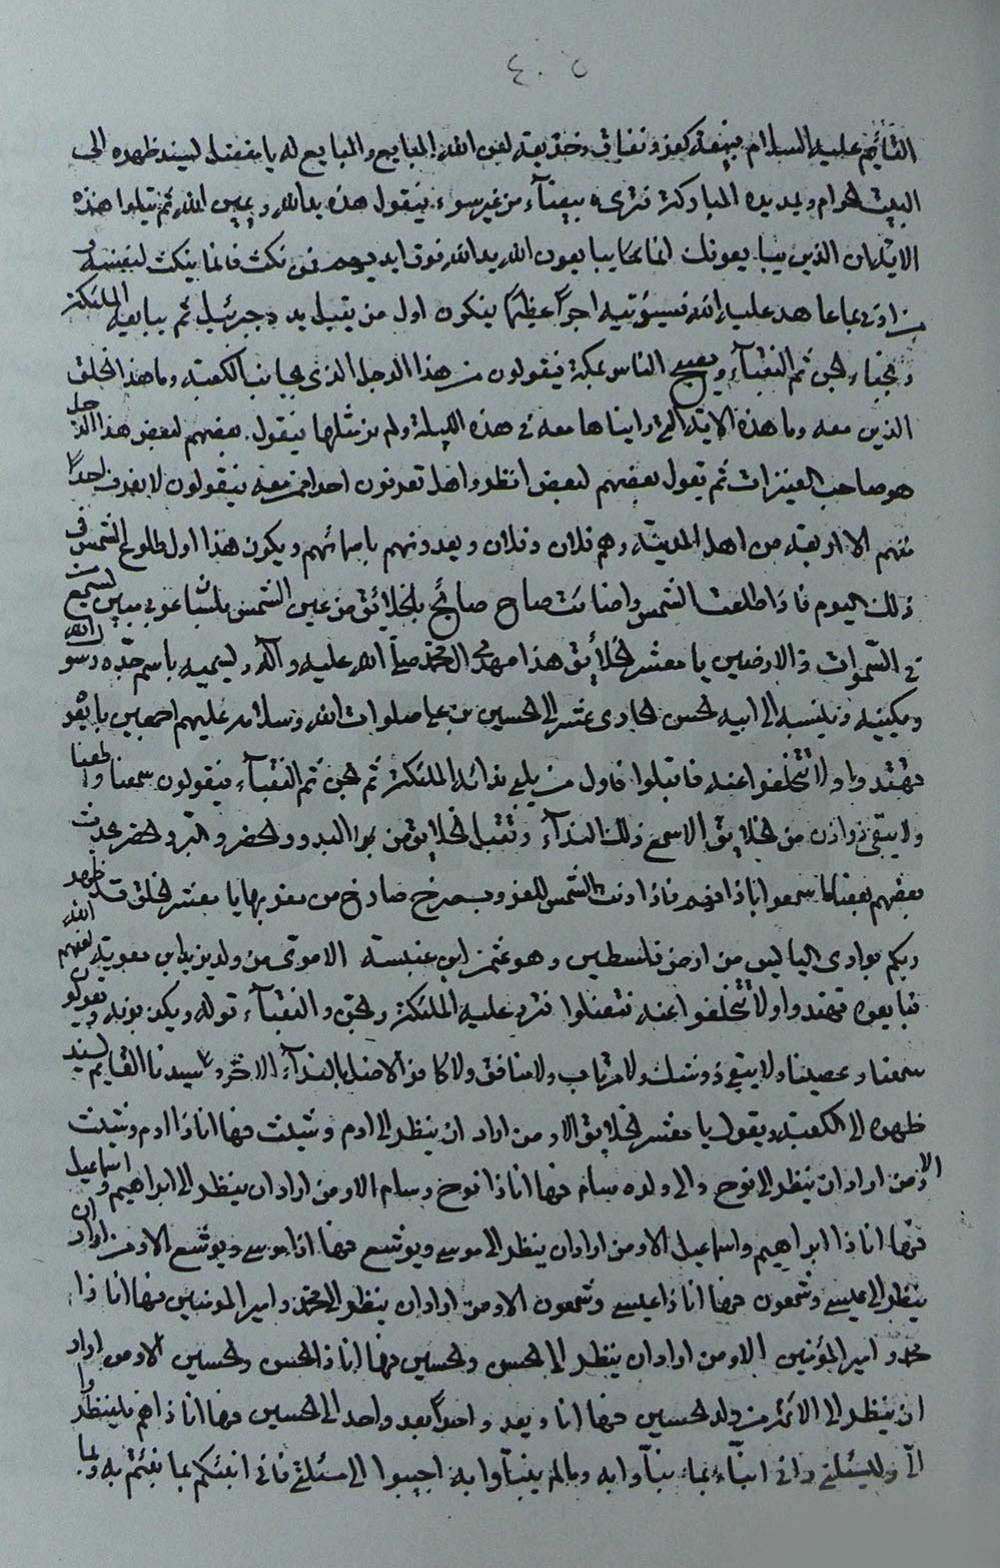 ٤٠٥
القائم عليه السلام فبيعته كفر ونفاق وخديعة لعن الله المبايع والمبايع له يا مفضل ليسند ظهره الى
البيت الحرام ويمد يده المباركة فترى بيضآء من غير سوء فيقول هذه يد الله ويمين الله ثم يتلوا هذه
الاية ان الذين يبايعونك انما يبايعون الله يد الله فوق ايديهم فمن نكث فانما ينكث لنفسه
ومن اوفى بما عاهد عليه الله فسيؤتيه اجراً عظيماً فيكون اول من يقبل يده جبرئيل ثم يبايعه الملئكة
ونجباء الجن ثم النقبآء ويصبح الناس بمكة فيقولون من هذا الرجل الذي بجانب الكعبة وما هذا الخلق
الذين معه وما هذه الاية التي رايناها معه في هذه الليلة ولم نر مثلها فيقول بعضهم لبعض هذا الرجل
هو صاحب العنيزات ثم يقول بعضهم لبعض انظروا هل تعرفون احدا ممن معه فيقولون لا نعرف احداً
منهم الا اربعة من اهل المدينة وهم فلان وفلان ويعدونهم باسمائهم ويكون هذا اول طلوع الشمس في
ذلك اليوم فاذا طلعت الشمس واضائت صاح صائح بالخلائق من عين الشمس بلسان عربي مبين لسميع
في السموات والارضين يا معشر الخلائق هذا مهدي ال محمد صلى الله عليه وآله ويسميه باسم جده رسول الله
ويكنيه وينسبه الى ابيه الحسن الحادي عشر الى الحسين بن علي صلوات الله وسلامه عليهم اجمعين بايعوه
تهتدوا ولا تتخلفوا عنه فاول من يلبي ندائه الملئكة ثم الجن ثم النقبآء فيقولون سمعنا واطعنا
ولا يبقى ذو اذن من الخلايق الا سمع ذلك الندآء وتقبل الخلايق من البدو والحضر والبر والبحر يحدث
بعضهم بعضا ما سمعوا باذانهم فاذا دنت الشمس للغروب صرخ صارخ من مغربها يا معشر الخلق قد ظهر
ربكم بوادي اليابس من ارض فلسطين وهو عثمن ابن عنبسة الاموي من ولد يزيد ابن معوية لعنهم الله
فبايعوه تهتدوا ولا تتخلفوا عنه فتضلوا فترد عليه الملئكة والجن والنقبآء قوله ويكذبونه ويقولون
سمعنا وعصينا ولا يبقى ذو شك ولا مرتاب ولا منافق ولا كافر الا ضل بالندآء الاخر وسيدنا القايم يسند
ظهره الى الكعبة ويقول يا معشر الخلايق الا ومن اراد ان ينظر الى ادم وشيث فها انا ذا ادم وشيث
الا ومن اراد ان ينظر الى نوح والى ولده سام فها انا ذا نوح وسام الا ومن اراد ان ينظر الى ابراهيم واسماعيل
فها انا ذا ابراهيم واسماعيل الا ومن اراد ان ينظر الى موسى ويوشع فها انا ذا موسى ويوشع الا ومن اراد ان
ينظر الى عيسى وشمعون فها انا ذا عيسى وشمعون الا ومن اراد ان ينظر الى محمد وامير المؤمنين فها انا ذا
محمد وامير المؤمنين الا ومن اراد ان ينظر الى الحسن والحسين فها انا ذا الحسن والحسين الا ومن اراد
ان ينظر الى الائمة من ولد الحسين فها انا ويعد واحداً بعد واحد الى الحسين فها انا ذا هم فلينظروا
الي وليسئلني فاني انبآء بما نبآوا به وما لم ينبآوا به اجيبوا الى مسئلتي فاني انبئكم بما نبئتم به وما